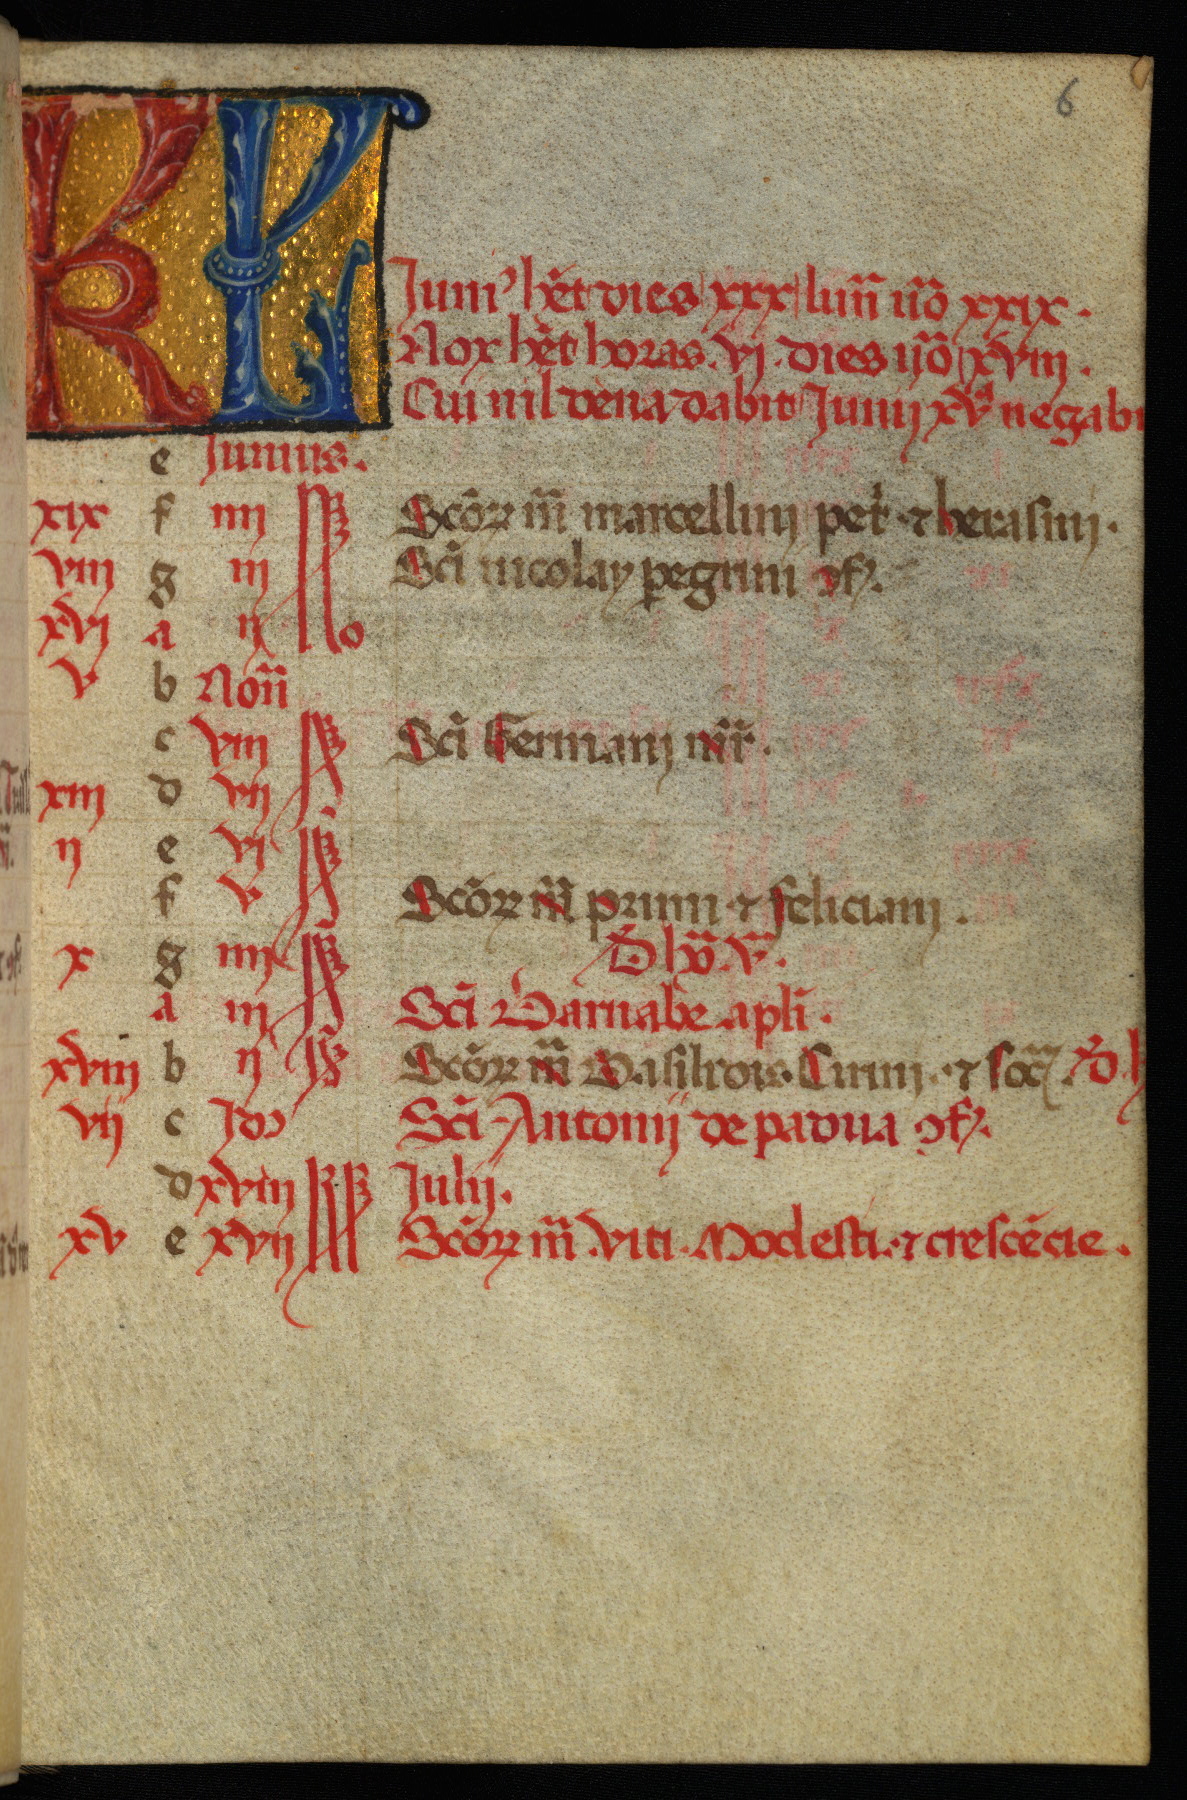 6
KL Juniꝰ hēt dies xxx lun̄ u̇o xxix.
Nox hēt horas. vj. dies u̇o xviij.
Cui nil dena dabit Junij xvᵃ negabi
e Junius.
xix f iiij Scōꝝ m̄ marcellini pet̄ ⁊ herasmi.
viij g iij Scī nicolay pegrini ↄf.
xvi a ij no
v b Non̄
c viij Scī Germani
xiij d vij
ij e vi
f v Scōꝝ m̄ primi ⁊ feliciani.
x g iiij D. v.
a iij Scī Barnabe apl̄i.
xviij b ij Scōꝝ m̄ Basilidis. Cirini. ⁊ soc̄. D.
vij c Idꝰ Scī Antonij de padua ↄf.
d xviij Julij.
xv e xvij Scōꝝ m̄ viti. Modesti. ⁊ crescēcie.